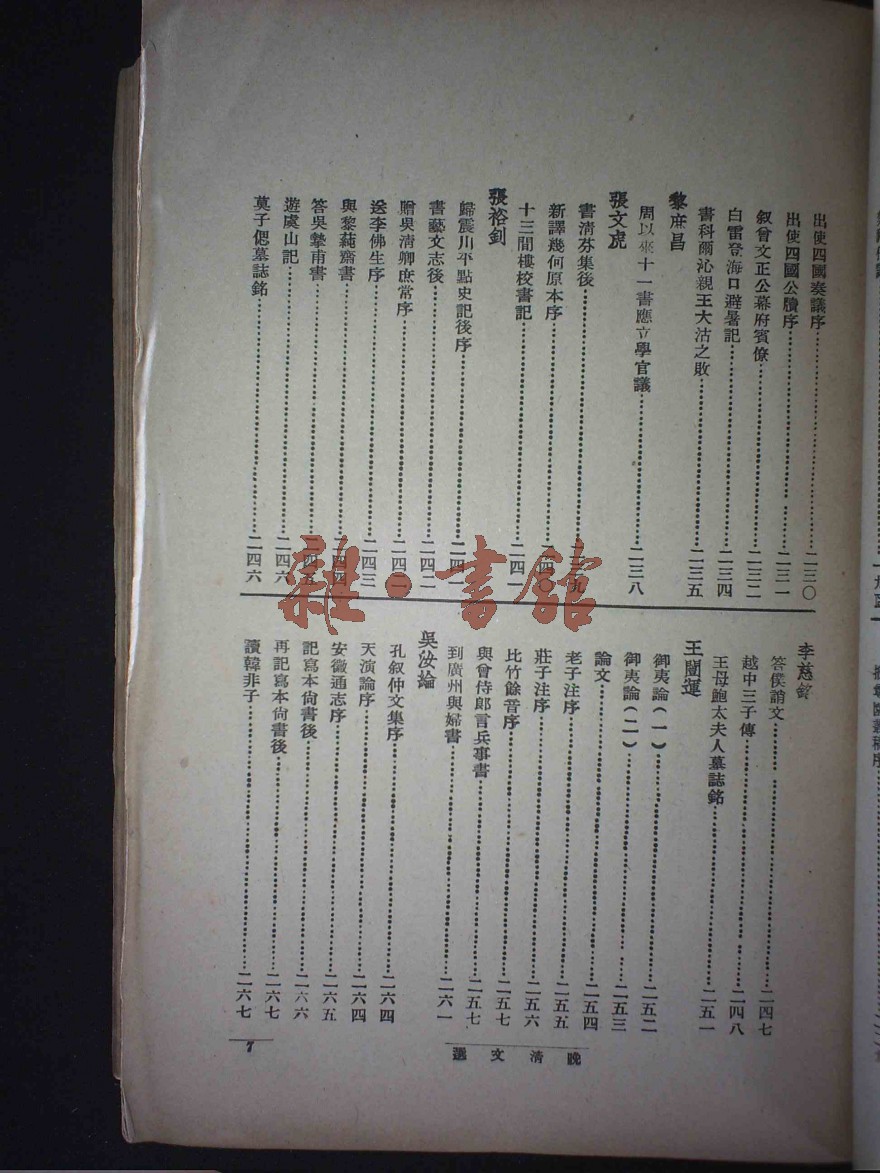 出使四國奏議序……二三〇
出使四國公牘序……二三一
叙曾文正公幕府賓僚……二三二
白雷登海口避暑記……二三四
書科爾沁親王大沽之敗……二三五
黎庶昌
周以來十一書應立學官議……二三八
張文虎
書清芬集後……二三九
新譯幾何原本序……二四〇
十三間樓校書記……二四一
張裕釗
歸震川平點史記後序……二四一
書藝文志後……二四二
贈吳清卿庶常序……二四二
送李佛生序……二四三
與黎蒓齋書……二四四
答吳摯甫書……二四五
遊虞山記……二四六
莫子偲墓誌銘……二四六
李慈銘
答僕誚文……二四七
越中三子傳……二四八
王母鮑太夫人墓誌銘……二五一
王闓運
御夷論(一)……二五二
御夷論(二)……二五三
論文……二五四
老子注序……二五五
莊子注序……二五六
比竹餘音序……二五七
與曾侍郎言兵事書……二五七
到廣州與婦書……二六一
吳汝綸
孔叙仲文集序……二六四
天演論序……二六四
安徽通志序……二六五
記寫本尙書後……二六六
再記寫本尙書後……二六七
讀韓非子……二六七
晚清文選
7
雜·書館